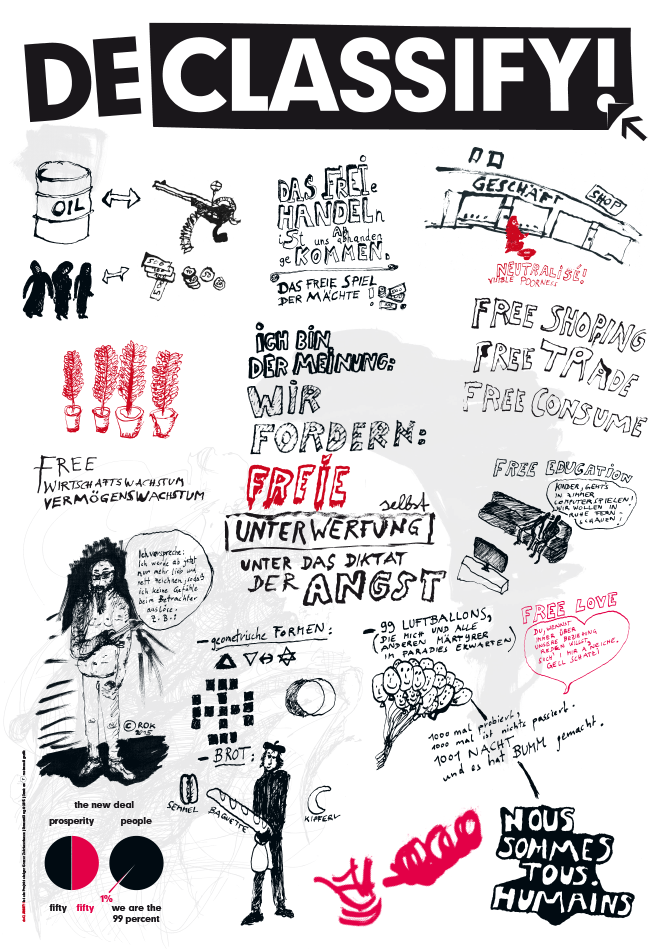 DECLASSIFY!
OIL
DAS FREIe
HANDELn
iSt uns abhanden
geKOMMEN.
DAS FREIE SPIEL
DER MÄCHTE!
GESCHÄFT
SHOP
NEUTRALISÉ!
VISIBLE POORNESS
FREE SHOPING
FREE TRADE
FREE CONSUME
iCH BIN
DER MEINUNG:
WIR
FORDERN:
FREIE
selbst
UNTERWERFUNG
UNTER DAS DIKTAT
DER ANGST
FREE
WIRTSCHAFTSWACHSTUM
VERMÖGENSWACHSTUM
FREE EDUCATION
KINDER, GEHTS
IN ZIMMER
COMPUTERSPIELEN!
WIR WOLLEN IN
RUHE FERN-
SCHAUEN!
Ich verspreche:
Ich werde ab jetzt
nur mehr lieb und
nett zeichnen, sodaß
ich keine Gefühle
beim Betrachter
auslöse.
Z.B.:
© ROK
2015
- geometrische FORMEN:
- BROT:
SEMMEL
BAGUETTE
KIPFERL
- 99 LUFTBALLONS,
(DIE MICH UND ALLE
ANDEREN MÄRTYRER
IM PARADIES ERWARTEN)
1000 mal probiert,
1000 mal ist nichts passiert.
1001 NACHT
und es hat BUMM gemacht.
FREE LOVE
DU, WENNST
IMMER ÜBER
UNSRE BEZIEHUNG
REDEN WILLST,
SUCH I MIR A 
GELL SCHATZI
NOUS
SOMMES
TOUS.
HUMAINS
the new deal
prosperity people
fifty fifty
1%
we are the
99 percent